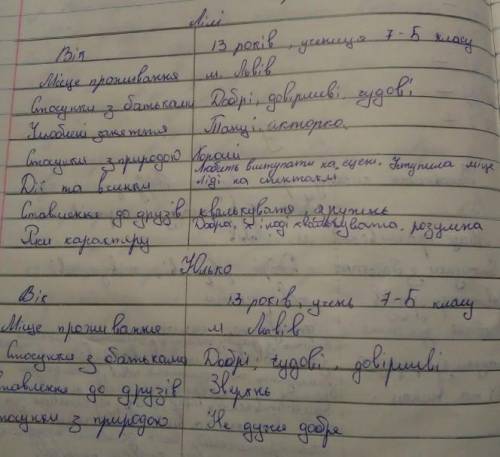 Лілі
Вік 13 років, учениця 7-Б класу
Місце проживання м. Львів
Стосунки з батьками Добрі, довірливі, чудові
Улюблені заняття Танці, акторка
Стосунки з природою Хороші
Дії та вчинки Любить виступати на сцені. Уступила місце Ліді на спектаклі
Ставлення до друзів квалькувата, а дружнє
Риси характеру Добра, іноді квалькувата. розумна
Юлько
Вік 13 років, учень 7-Б класу
Місце проживання м. Львів
Стосунки з батьками Добрі, чудові, довірливі
Ставлення до друзів
Стосунки з природою Не дуже добре